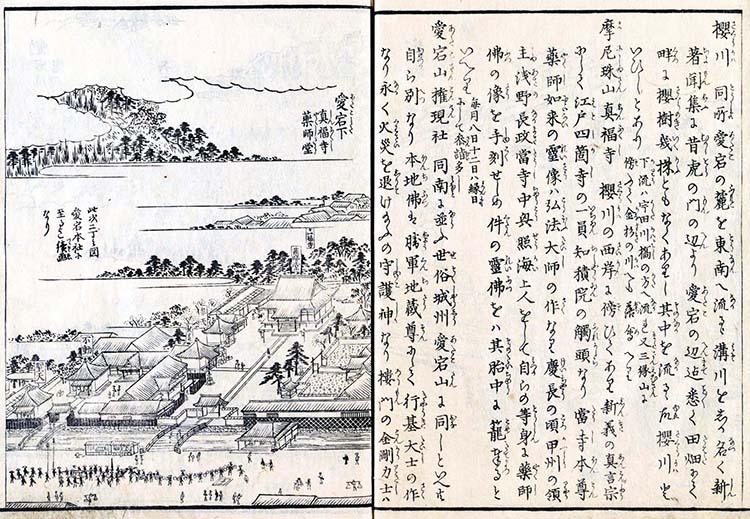 櫻川 同所愛宕の麓を東南へ流るゝ溝川をしか名く新
著聞集に昔虎の門の辺より愛宕の辺迄悉く田畑にて
畔に櫻樹幾株ともなくありし其中を流るゝ故櫻川と
いひしとあり
下流ハ宇田川橋の方へ流る又三縁山の
傍へ金杉の川に落合へり
摩尼珠山真福寺 櫻川の西岸に傍ひてあり新義の真言宗
にして江戸四箇寺の一員知積院の觸頭なり 當寺本尊
薬師如来の霊像ハ弘法大師の作なり慶長の頃甲州の領
主浅野長政當寺中興照海上人をして自らの等身に薬師
佛の像を手刻せしめ件の霊佛をハ其胎中に籠奉ると
いへり
毎月八日十二日ハ縁日
にして参詣多し
愛宕山権現社 同南に並ふ世俗城州愛宕山に同しといへとも
自ら別なり本地佛ハ勝軍地蔵尊にして行基大士の作
なり永く火災を退けたまふの守護神なり樓門の金剛力士ハ
愛宕下
真福寺
薬師堂
此次二丁の図
愛宕本社に
至るまて続画
なり